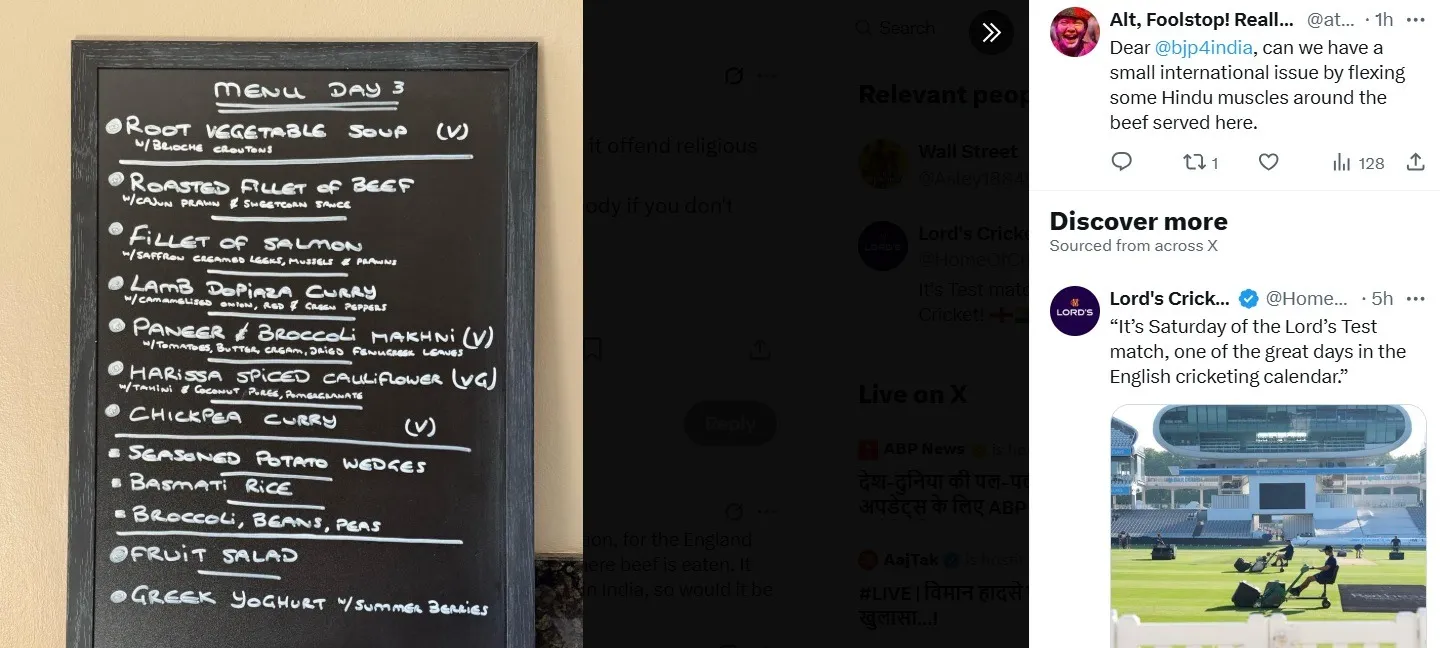 MENU DAY 3
ROOT VEGETABLE SOUP (V)
W/BRIOCHE CROUTONS
ROASTED FILLET OF BEEF
W/CAJUN PRAWN & SWEETCORN SAUCE
FILLET OF SALMON
W/SAFFRON CREAMED LEEKS, MUSSELS & PRAWNS
LAMB DOPIAZA CURRY
W/CARAMELISED ONION, RED & GREEN PEPPERS
PANEER & BROCCOLI MAKHNI (V)
W/TOMATOES, BUTTER, CREAM, DRIED FENUGREEK LEAVES
HARISSA SPICED CAULIFLOWER (VG)
W/TAHINI & COCONUT PUREE, POMEGRANATE
CHICKPEA CURRY (V)
SEASONED POTATO WEDGES
BASMATI RICE
BROCCOLI, BEANS, PEAS
FRUIT SALAD
GREEK YOGHURT W/SUMMER BERRIES
Search
it offend religious
ody if you don't
Reply
on, for the England
ere beef is eaten. It
n India, so would it be
Relevant peop
Wall Street
Lord's Cricke
@HomeOfCr
It's Test matc
Cricket!
Live on X
ABP News is
देश-दुनिया की पल-पल
अपडेट्स के लिए ABP
AajTak is hos
#LIVE | विमान हादसे
खुलासा...!
Alt, Foolstop! Reall... @at... · 1h
Dear @bjp4india, can we have a
small international issue by flexing
some Hindu muscles around the
beef served here.
1 128
Discover more
Sourced from across X
LORD'S
Lord's Crick... @Home... · 5h
“It’s Saturday of the Lord’s Test
match, one of the great days in the
English cricketing calendar.”